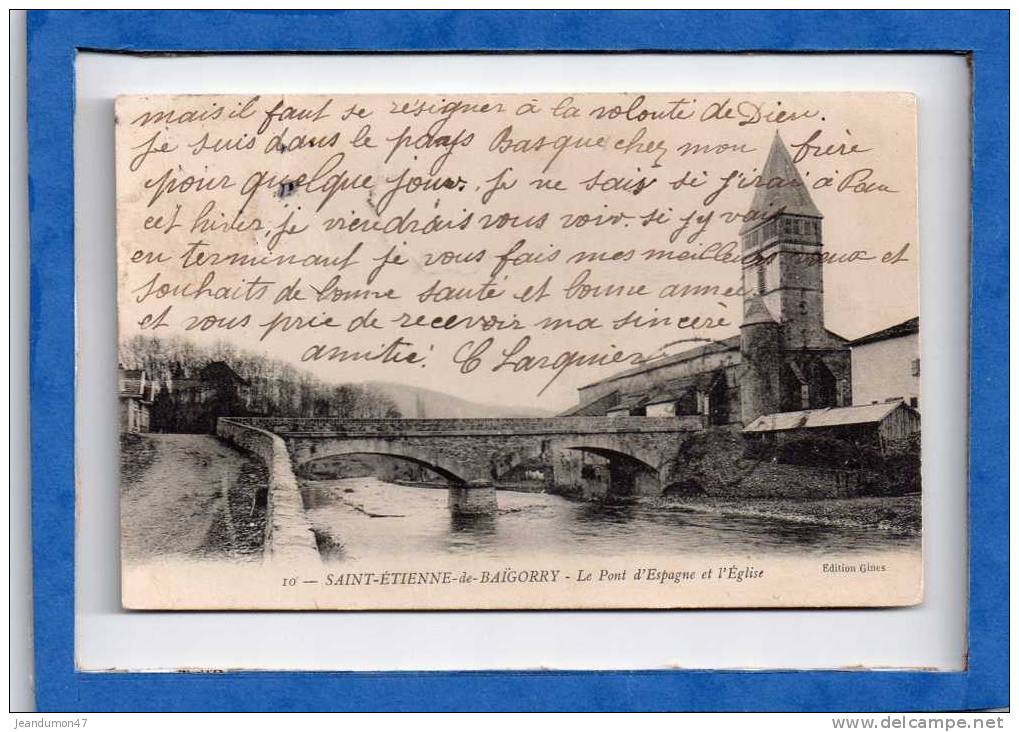 mais il faut se résigner à la volonté de Dieu.
Je suis dans le pays Basque chez mon frère
pour quelque jour. Je ne sais si j'irai à Pau
cet hiver, je viendrais vous voir si j'y vais
en terminant je vous fais mes meilleurs vœux et
souhaits de bonne santé et bonne année
et vous prie de recevoir ma sincère
amitié. C Larquier
10 — SAINT-ÉTIENNE-de-BAÏGORRY - Le Pont d'Espagne et l'Église
Edition Gines
Jeandumon47
www.delcampe.net